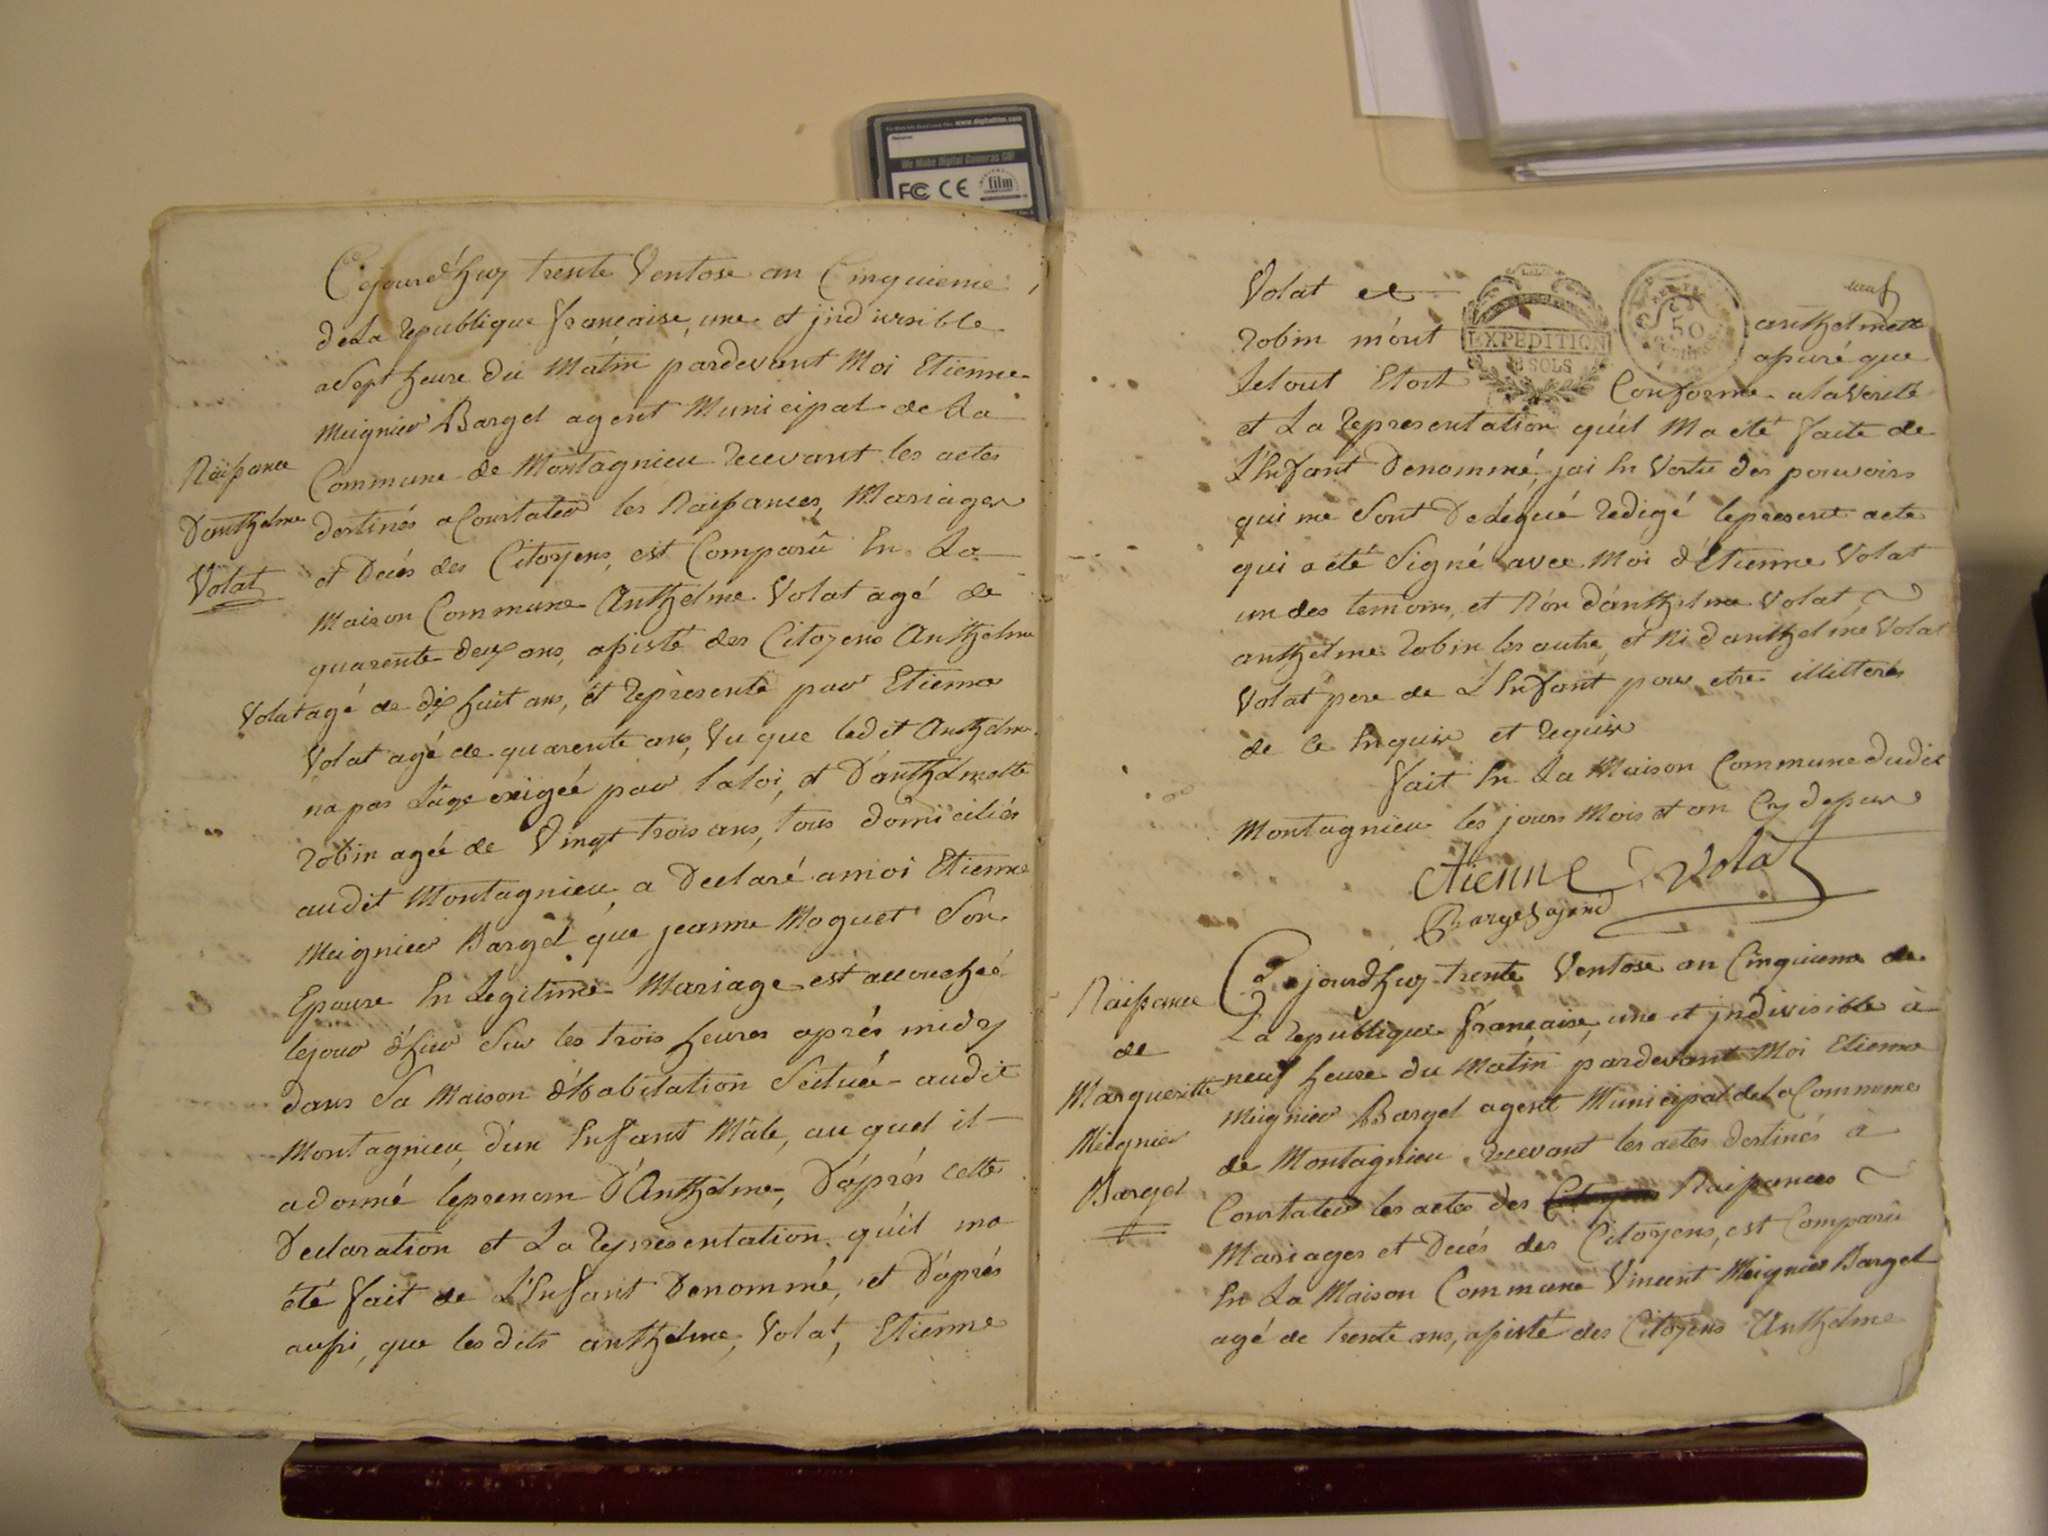 www.digitalfilm.com
We Make Digital Cameras GO!
FC CE film
Cejourd'huy trente Ventose an Cinquieme
de La republique francaise, une et jndivisible
a Sept heure du Matin pardevant Moi Etienne
Meignier Bargel agent Municipal de La
Commune de Montagnieu recevant les actes
destinés a Constater les Naissances, Mariages
et Decés des Citoyens, est Comparû En La
Maison Commune Anthelme Volat agé de
quarente deux ans, assisté des Citoyens Anthelme
Volat agé de dix huit ans, et représenté par Etienne
Volat agé de quarente ans, Vu que ledit Anthelme
na pas Lâge exigée par la loi, et D'anthelmette
robin agée de Vingt trois ans, tous domiciliés
audit Montagnieu, a Declaré a moi Etienne
Meignier Bargel que jeanne Moguet Son
Epouse En Legitime Mariage est accouchée
le jour d'hier Sur les trois heures aprés midy
dans Sa Maison d'habitation Scituée audit
Montagnieu, d'un Enfant Mâle, auquel il
a donné le prenom D'Anthelme, D'âprés cette
Declaration et La representation qu'il ma
été fait de L'Enfant Denommé, et D'aprés
aussi, que les dits anthelme, Volat, Etienne
Naissance
D'anthelme
Volat
neuf
Volat et anthelmette
robin m'ont assuré que
Le tout Etoit Conforme a la Verité
EXPEDITION
8 SOLS
50
et La representation qu'il Ma été faite de
L'Enfant Denommé, jai En Vertu des pouvoirs
qui me Sont Delegué redigé le present acte
qui a été Signé avec Moi d'Etienne Volat
un des temoins, et Non d'anthelme Volat,
anthelme robin les autre, et Ni d'anthelme Volat
Volat pere de L'Enfant pour etre illitterés
de Ce Enquis et requis
fait En La Maison Commune dudit
Montagnieu les jours Mois et an Cy dessus
Etienne Volat
Bargel agend
Naissance
de
Margueritte
Meignier
Bargel
Cejourd'huy trente Ventose an Cinquieme de
La republique francaise, une et jndivisible à
neuf heure du Matin pardevant Moi Etienne
Meignier Bargel agent Municipal de la Commune
de Montagnieu, recevant les actes destinés à
Constater les actes des Citoyens Naissances
Mariages et Decés des Citoyens, est Comparû
En La Maison Commune Vincent Meignier Bargel
agé de trente ans, assisté des Citoyens Anthelme